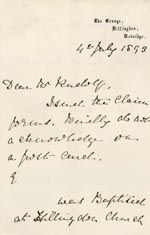 The Grange,
Hillingdon,
Uxbridge.
4th July 1893
Dear Mr Rudolf,
I send the Claim
forms. Kindly do not
acknowledge on
a post card.
E
was Baptised
at Hillingdon Church